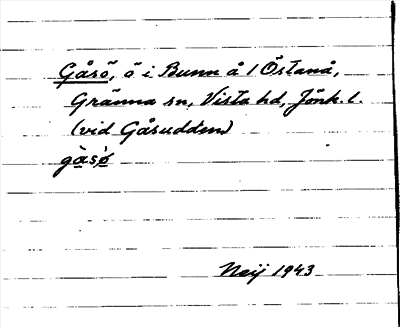 Gåsö, ö i Bunn å 1 Östanå,
Gränna sn, Vista hd, Jönk. l.
(vid Gåsudden)
gàsø̀
Neij 1943